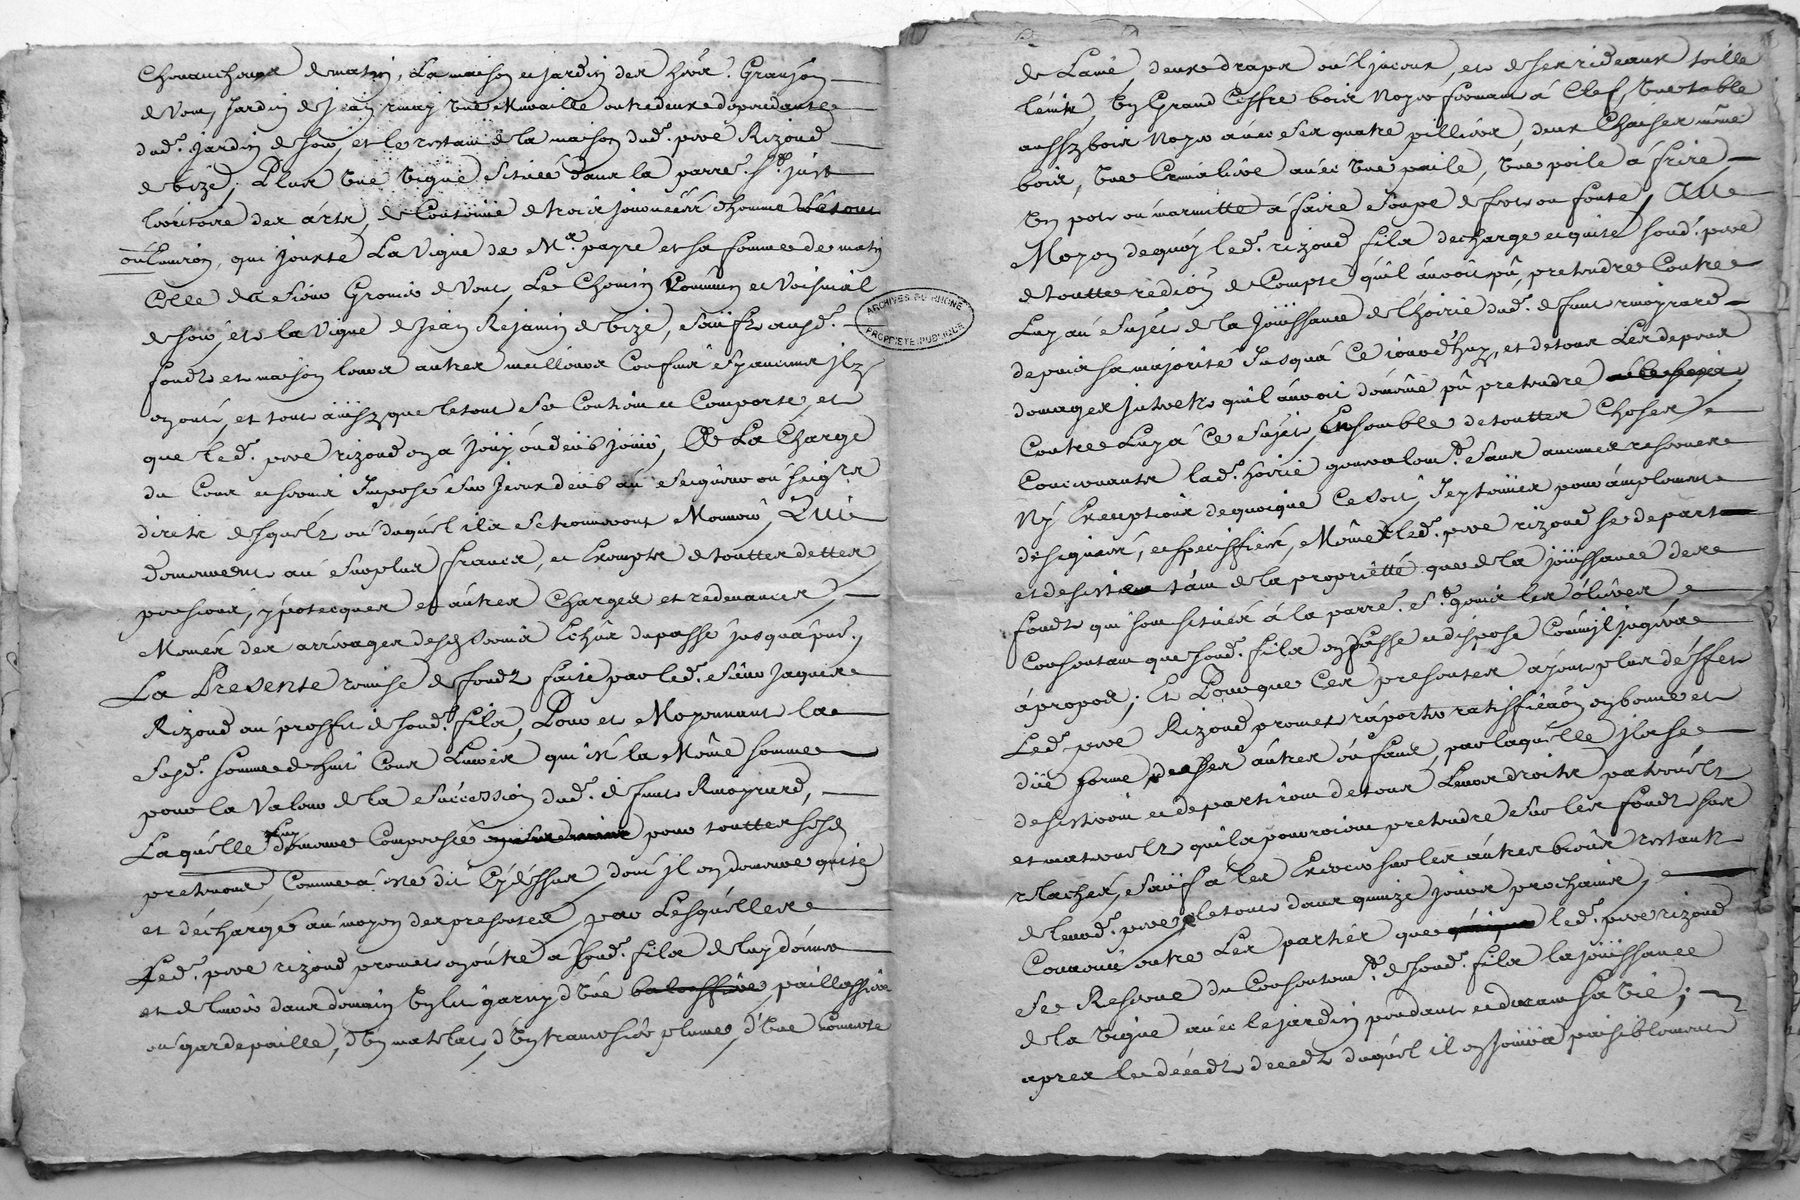 de matin, La maison et jardin des hoirs Granjon
de vent, jardin de jean
dud. jardin de soir, et le restant de la maison dud. pere Rizoud
de bize; Plus une vigne située dans la parre. St. just
de trois journées d'homme
qui jouxte La vigne de Mr. payre et sa femme de matin
Celle de sieur de vent, Le Chemin Commun et voisinal
de soir, et la vigne de jean Rejanin de bize, sauf ausd.
fondz et maison leurs autres meilleurs Confins sy aucuns jlz
en ont, et tout ainsy que le tout se Contient et Comporte, et
que led. pere rizoud en a jouy ou deub jouir, A La Charge
du Cens et servis Imposé sur jceux deub au seigneur ou seigrs
directs desquelz ou duquel ilz se trouveront Mouvoir,
demeurent au surplus francs, et Exempts de touttes dettes
pensions, ypotecques et autres Charges et redevances,
Memes des arrérages desd. servis Echus du passé jusqu'à pnt.
La Presente remise de fondz faite par led. sieur jaques
Rizoud au proffit de sond. fils, Pour et Moyennant la
susd. somme de huit Cent Livres qui est la Même somme
pour la Valeur de la succession dud. deffunt Rmoyrard,
Laquelle luy demeure Compensée pour touttes sesd.
pretentions, Comme a été dit Cydessus, dont il en demeure quite
et déchargé au moyen des presentes, par Lesquelles
Led. pere rizoud promet en outre a sond. fils de luy donner
et delivrer dans demain un lit garny d'une paillassiere
ou gardepaille, d'un matelat, d'un traversier plumes, d'une Couverte
de Laine, deux draps ou linceux, et de ses rideaux toille
teinte, un Grand Coffre bois Noyer fermant à Clef, une table
aussy bois Noyer avec ses quatre pilliers, deux Chaises même
bois, une Cremaliere avec une paile, une poile à frire
un pot ou marmitte à faire soupe de fer ou fonte, Au
Moyen de quoy led. rizoud fils decharge et quite sond. pere
de toutte redion de Compte qu'il auroit pû pretendre Contre
Luy au sujet de la jouissance de l'hoirie dud. defunt rmoyrard
depuis sa majorité jusqu'à Ce jourdhuy, et de tous Les depens
domages jnterets qu'il auroit de même pû pretendre
Contre Luy à Ce sujet, Ensemble de touttes Choses
Concernants lad. hoirie generalemt. sans aucunes reserves
Ny Exceptions de quoique Ce soit,
designées, et speciffiées, Même led. pere rizoud se depart
et desiste tant de la propriétté que de la jouissance des
fondz qui sont situés à la parre. St. genis les olieres
Consentant que sond. fils en fasse et dispose Comme jl jugera
àpropos; Et Pourque Ces presentes ayent plus d'effet
Led. pere Rizoud promet raporter ratiffication en bonne et
düe forme de ses autres enfans, par laquelle jls se
desisteront et departiront de tous Leurs droits paternels
et maternels qu'ils pourroient pretendre sur les fondz sus
relachés, sauf a les Exercer sur les autres biens restants
de leurd. pere, le tout dans quinze jours prochains,
Convenu entre Les parties que led. pere rizoud
se Reserve du Consentemt. de sond. fils la jouissance
de la vigne avec le jardin pendant et durant sa vie;
apres le décedz duquel il en jouira paisiblement
ARCHIVES DU RHÔNE
PROPRIÉTÉ PUBLIQUE